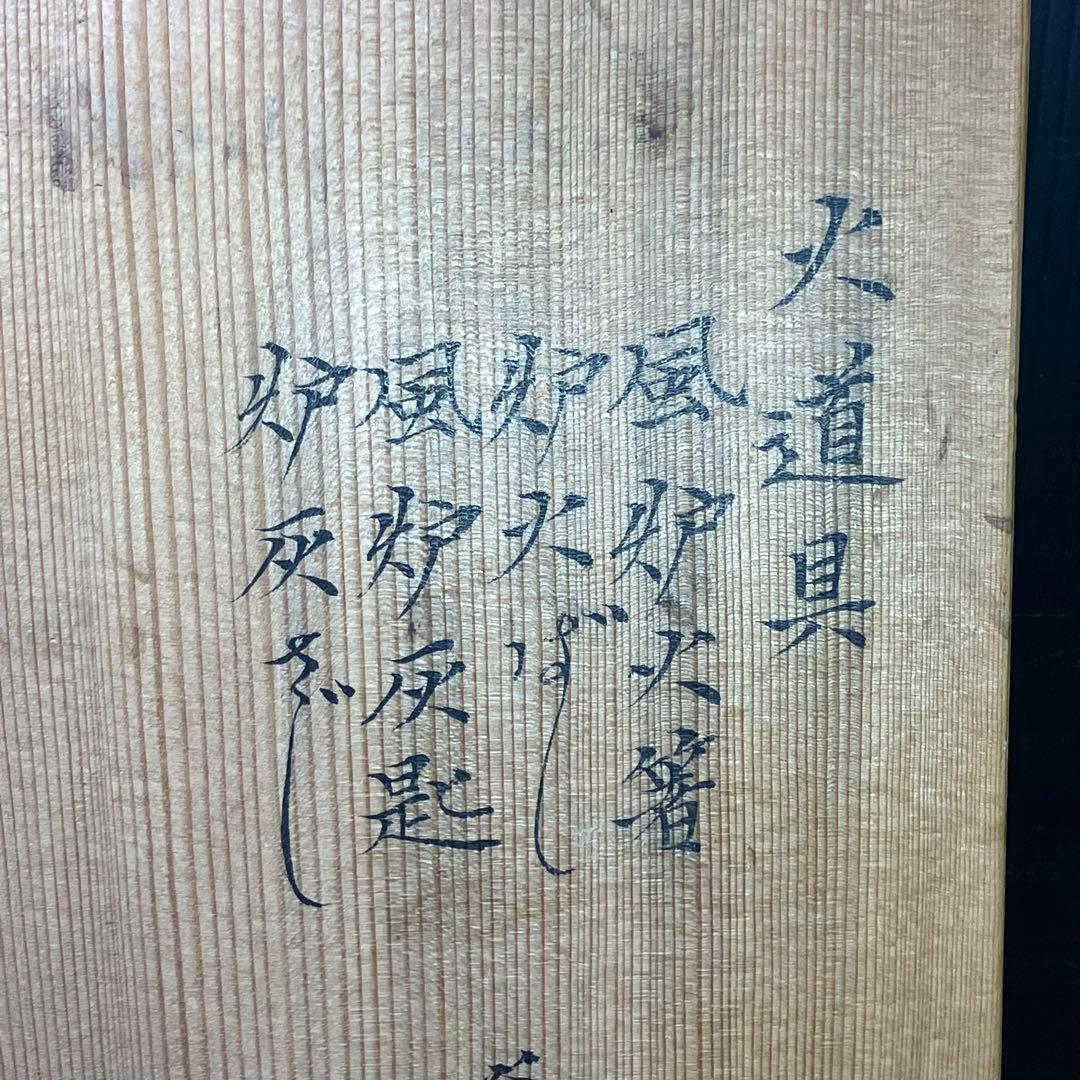 火道具
風炉火箸
炉火ばし
風炉灰匙
炉灰さじ